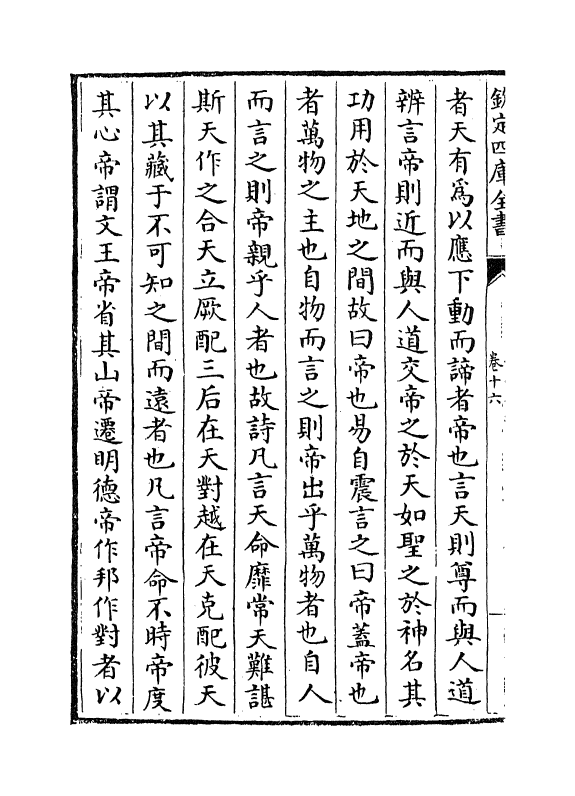 欽定四庫全書
卷十六
者天有為以應下動而諦者帝也言天則尊而與人道
辨言帝則近而與人道交帝之於天如聖之於神名其
功用於天地之間故曰帝也易自震言之曰帝蓋帝也
者萬物之主也自物而言之則帝出乎萬物者也自人
而言之則帝親乎人者也故詩凡言天命靡常天難諶
斯天作之合天立厥配三后在天對越在天克配彼天
以其藏于不可知之間而遠者也凡言帝命不時帝度
其心帝謂文王帝省其山帝遷明德帝作邦作對者以